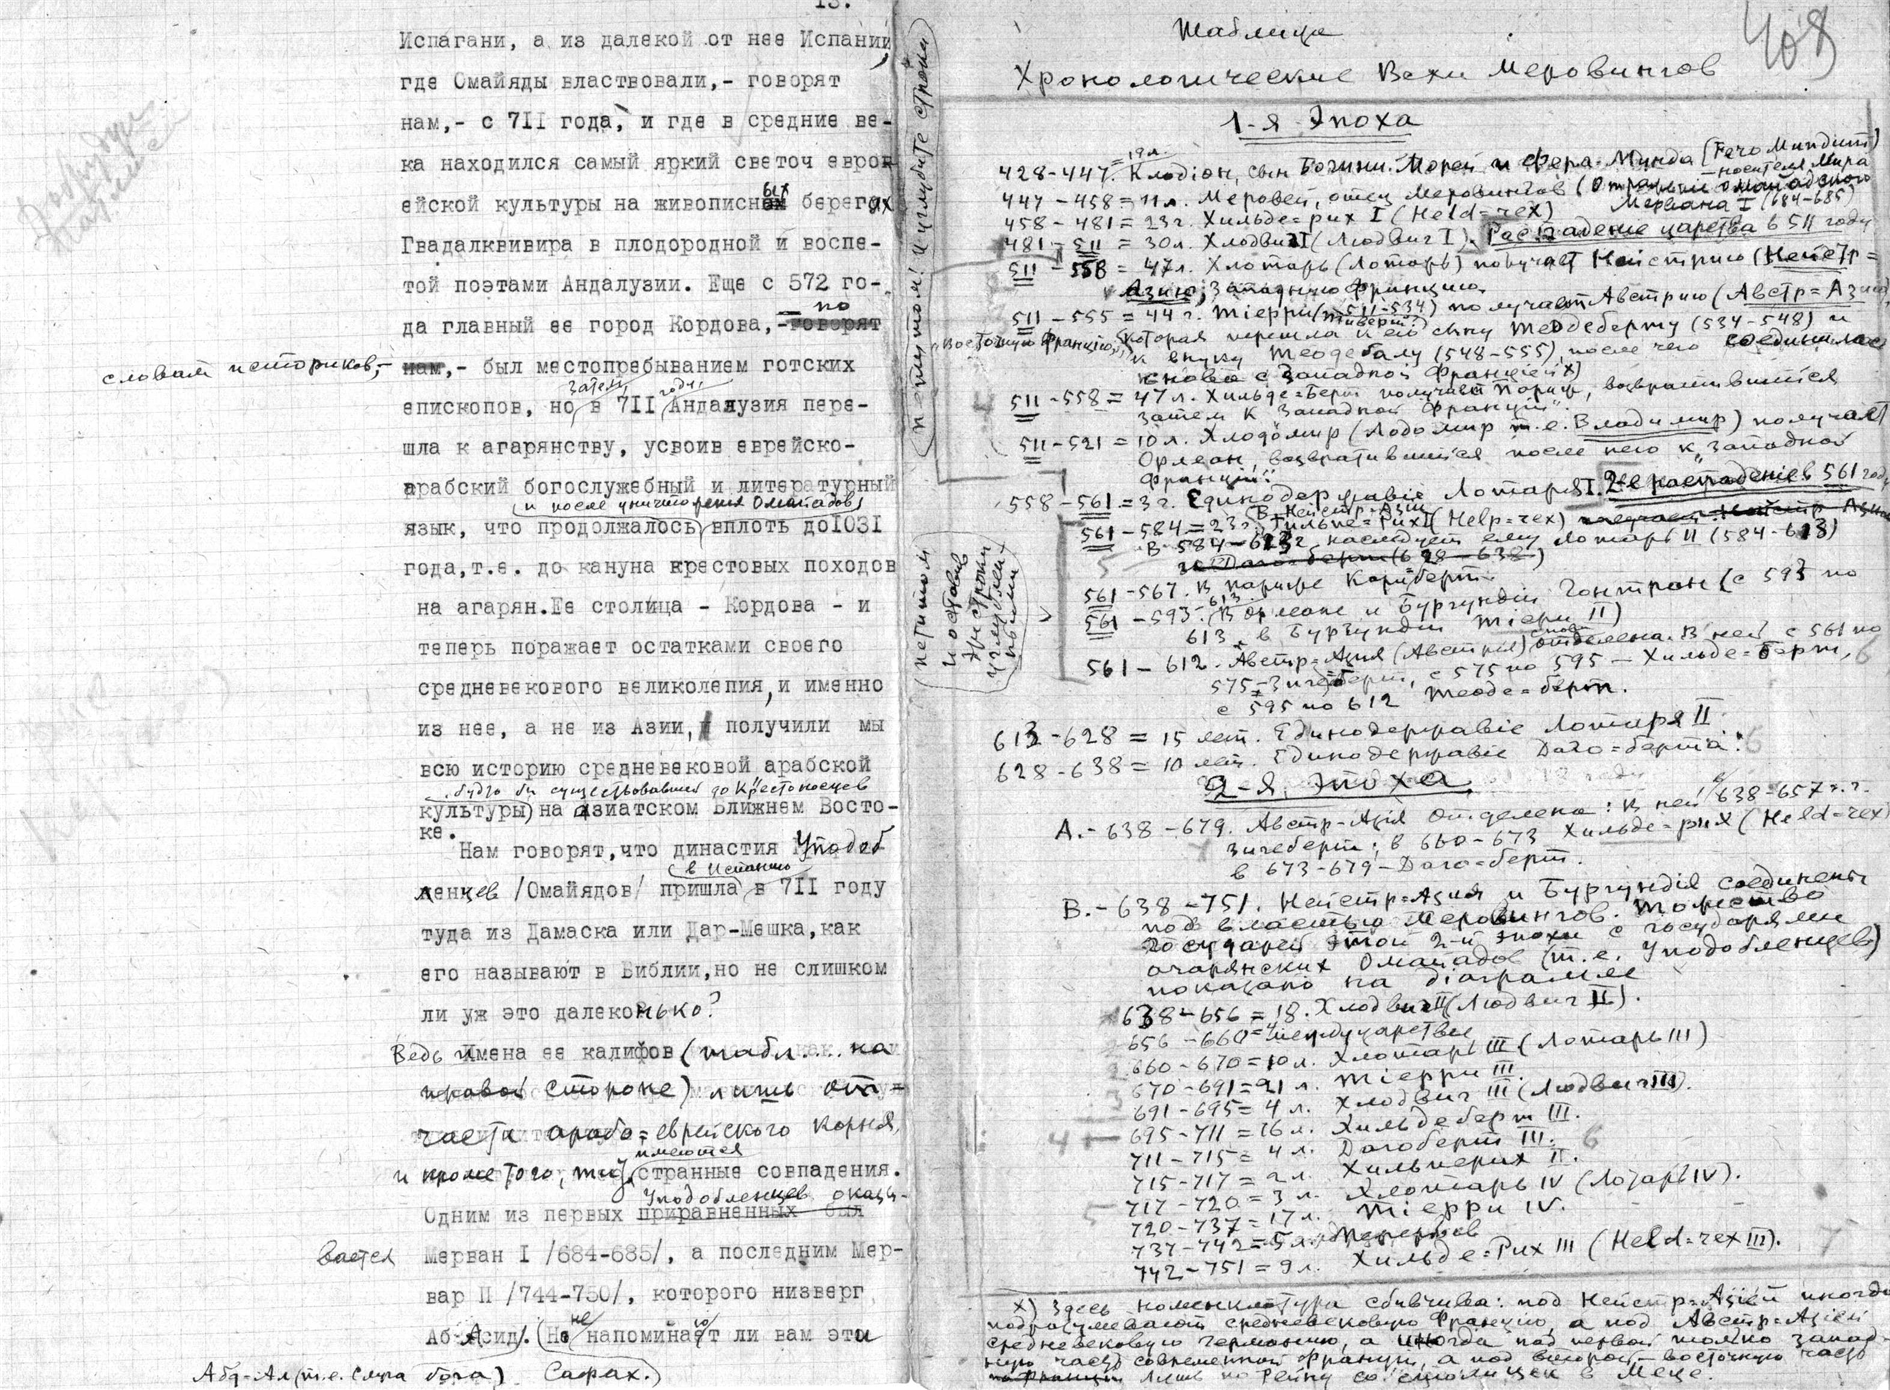 13.
Испагани, а из далекой от нее Испании,
где Омайяды властвовали,- говорят
нам,- с 7II года, и где в средние ве-
ка находился самый яркий светоч европ
ейской культуры на живописных берегах
Гвадалквивира в плодородной и воспе-
той поэтами Андалузии. Еще с 572 го-
да главный ее город Кордова,- по
словам историков,- был местопребыванием готских
затем годy
епископов, но в 7II Андалузия пере-
шла к агарянству, усвоив еврейско-
арабский богослужебный и литературный
(и после уничтожения Омайадов)
язык, что продолжалось вплоть до I03I
года,т.е. до кануна крестовых походов
на агарян.Ее столица - Кордова - и
теперь поражает остатками своего
средневекового великолепия, и именно
из нее, а не из Азии, и получили мы
всю историю средневековой арабской
будто бы существовавшей до Крестоносцев
культуры) на азиатском Ближнем Восто-
ке.
Нам говорят,что династия Уподоб
в Испанию
ленцев /Омайядов/ пришла в 7II году
туда из Дамаска или Дар-Мешка,как
его называют в Библии,но не слишком
ли уж это далеконько?
Ведь имена ее калифов (табл.... на
правой стороне) лишь от=
части арабо=еврейского корня,
имеются
и кроме того, тут странные совпадения.
Уподобленцев оказы-
Одним из первых приравненных был
вается Мерван I /684-685/, а последним Мер-
вар II /744-750/, которого низверг
Аб-Асид/. (Не напоминают ли вам эти
Абд-Ал (т.е. Слуга бога) Сафах.)
петитом! и углубите строки
петитом
и оставив
эти строки
углублен-
ными
408
Таблица
Хронологические Вехи Меровингов
1-я Эпоха
428-447 = 19 л. Клодіон, сын Богини Морей и Фера-Мунда (Fero Mundum)
носителя Мира
447 - 458 = 11 л. Меровей, отец Меровингов (Отражение омайадского
Мервана I (684-685)
458 - 481 = 23 г. Хильде=рих I (Held=rex)
481 - 511 = 30 л. Хлодвиг I (Людвиг I). Распадение царства в 511 году
511 - 558 = 47 л. Хлотарь (Лотарь) получает Нейстрию (Нейстр=
Азию, Западную Францию.
511 - 555 = 44 г. Тіерри (511-534) получает Австрию (Австр=Азию,
Восточную Францію), которая перешла к его сыну Теодеберту (534-548) и
к внуку Теодебалу (548-555), после чего соединилась
снова с Западной Францией x)
511 - 558 = 47 л. Хильде=берт получает Париж, возвратившийся
затем к Западной Франции.
511 - 521 = 10 л. Хлодомир (Лодомир т.е. Владимир) получает
Орлеан, возвратившийся после него к „Западной
Франции".
558 - 561 = 3 г. Единодержавіе Лотаря I. 2-е распаденіе в 561 году
(В Нейстр=Азии
561 - 584 = 23 г. Хильпе=Рих I (Help=rex)
В 584-613 г. наследует ему Лотарь II (584-613)
и Дагоберт (628-638)
561 - 567. В Париже Кариберт.
561 - 593. (В Орлеане и Бургундіи Гонтран (с 593 по
613 в Бургундіи Тіерри II)
561 - 612. Австр=Азия (Австрия) снова отделена. В ней с 561 по
575 - Зигеберт, с 575 по 595 - Хильде=берт,
с 595 по 612 Теоде=берт.
613 - 628 = 15 лет. Единодержавіе Лотаря II
628 - 638 = 10 лет. Единодержавіе Даго=берта.
2-я Эпоха
А. - 638 - 679. Австр-Азія отделена: в ней 638-657 г.г.
Зигеберт; в 660-673 Хильде=рих (Held=rex)
в 673-679 - Даго=берт.
В. - 638 - 751. Нейстр=Азия и Бургундія соединены
под властью Меровингов. Тождество
государей этой 2-й эпохи с государями
агарянских Омайадов (т.е. Уподобленцев)
показано на діаграмме
638 - 656 = 18. Хлодвиг II (Людвиг II).
656 - 660 = 4 междуцарствие
660 - 670 = 10 л. Хлотарь III (Лотарь III)
670 - 691 = 21 л. Тіерри III.
691 - 695 = 4 л. Хлодвиг III (Людвиг III).
695 - 711 = 16 л. Хильдеберт III.
711 - 715 = 4 л. Дагоберт III.
715 - 717 = 2 л. Хильперих II.
717 - 720 = 3 л. Хлотарь IV (Лотарь IV).
720 - 737 = 17 л. Тіерри IV.
737 - 742 = 5 л.
742 - 751 = 9 л. Хильде=Рих III (Held=rex III).
x) Здесь номенклатура сбивчива: под Нейстр=Азіей иногда
подразумевают средневековую Францию, а под Австр=Азіей
средневековую Германию, а иногда под первой только запад-
ную часть современной Франции, а под второй,- восточную часть
лишь по Рейну со столицей в Меце.